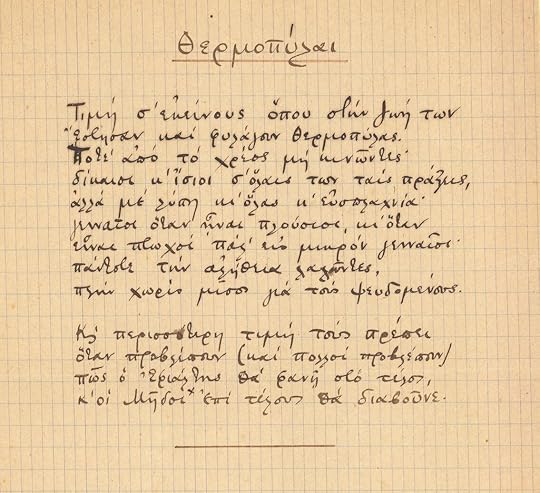 Θερμοπύλαι
Τιμή σ' εκείνους όπου στην ζωή των
ώρισαν και φυλάγουν Θερμοπύλας.
Ποτέ από το χρέος μη κινώντες·
δίκαιοι κ' ίσιοι σ' όλαις των ταις πράξεις,
αλλά με λύπη κι όλας κ' ευσπλαχνία·
γενναίοι όταν ήναι πλούσιοι, κι όταν
είναι πτωχοί πάλ' εις μικρόν γενναίοι·
πάντοτε την αλήθεια λαλώντες,
πλην χωρίς μίσος για τους ψευδομένους.
Κι περισσότερη τιμή τους πρέπει
όταν προβλέπουν (και πολλοί προβλέπουν)
πώς ο Εφιάλτης θα φανή στο τέλος,
κ' οι Μήδοι επί τέλους θα διαβούνε.